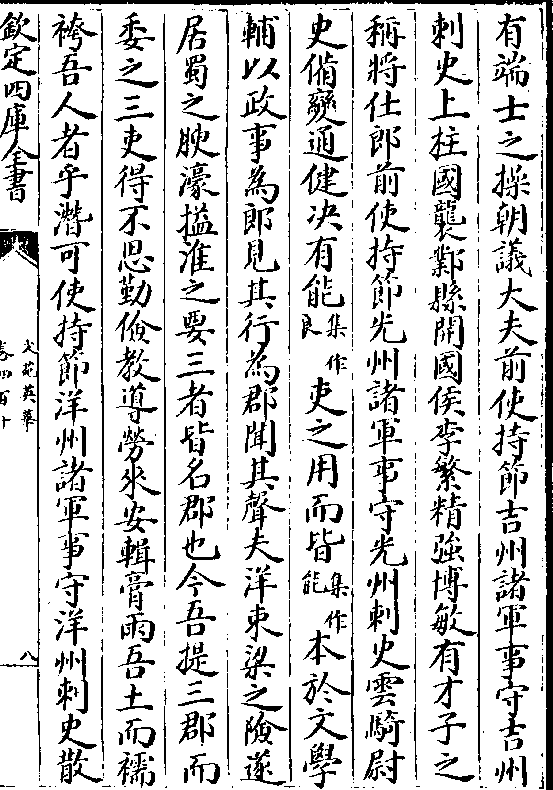 有端士之操朝議大夫前使持節吉州諸軍事守吉州
刺史上柱國襲鄴縣開國侯李繁精強博敏有才子之
稱將仕郎前使持節光州諸軍事守光州刺史雲騎尉
史備變通健決有能集作良吏之用而皆集作能本於文學
輔以政事為郎見其行為郡聞其聲夫洋束梁之險遂
居蜀之腴濠搤淮之要三者皆名郡也今吾提三郡而
委之三吏得不思勤儉教導勞來安輯膏雨吾土而襦
袴吾人者乎潛可使持節洋州諸軍事守洋州刺史散
欽定四庫全書
文苑英華
卷四百十
八